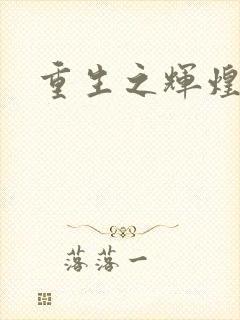 重生之辉煌
落落一